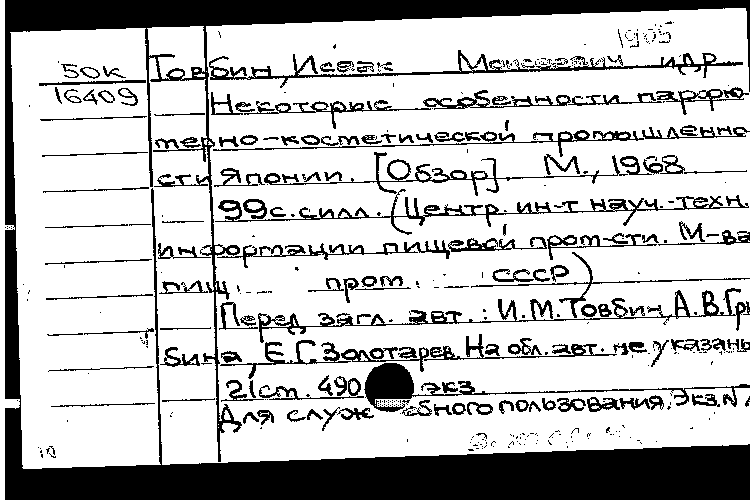 1905
50к Товбин, Исаак Моисеевич и др
16409 Некоторые особенности парфю
мерно-косметической промышленно
сти Японии. [Обзор]. М., 1968
99 с. с илл. (Центр. ин-т науч.-техн.
информации пищевой пром-сти. М-ва
пищ. пром. СССР)
Перед загл. авт.: И.М. Товбин, А.В. Гри
бина, Е.Г. Золотарев. На обл. авт. не указаны
2(ст. 490 экз.
Для служебного пользования. Экз. N